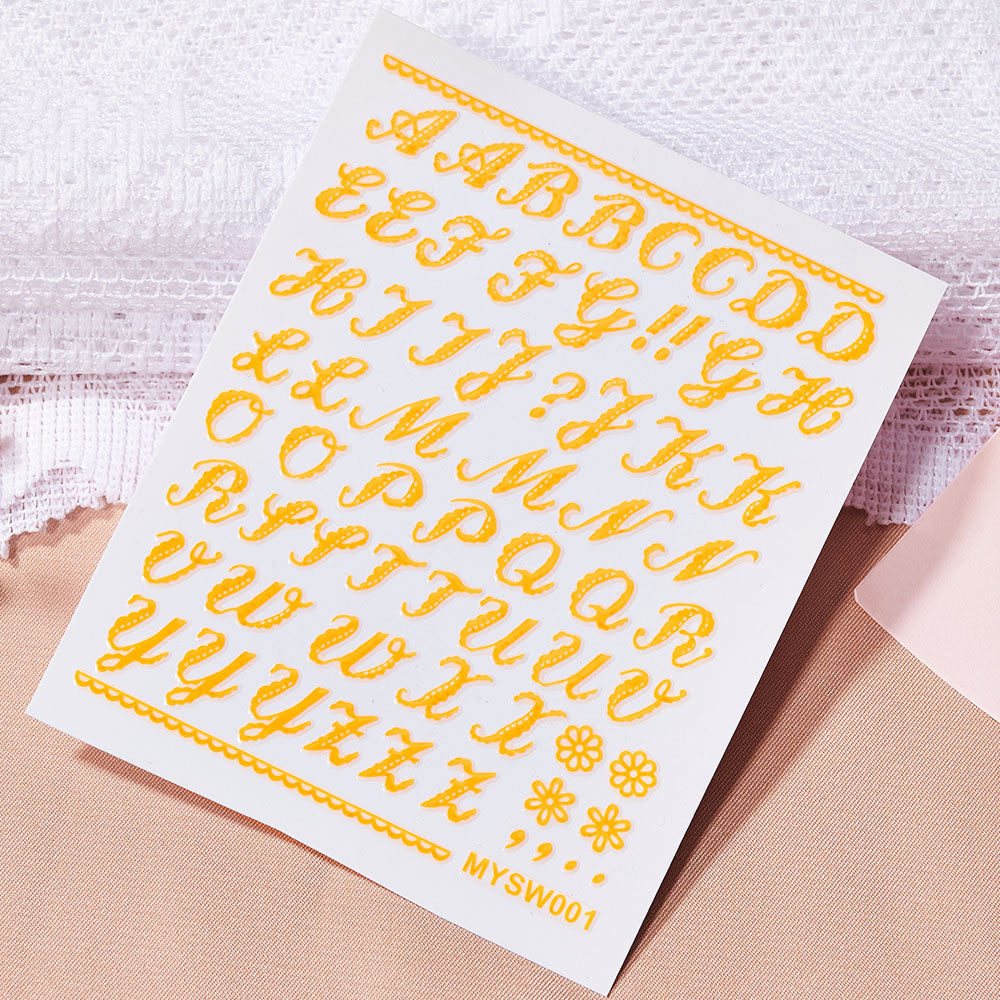 A A B B C C D D
E E F F G ! ! G H
H I I J ? J K K
L L M M N N
O O P P Q Q R
R S S T T U U V
V W W X X
Y Y Y Z Z Z , , . .
MYSW001